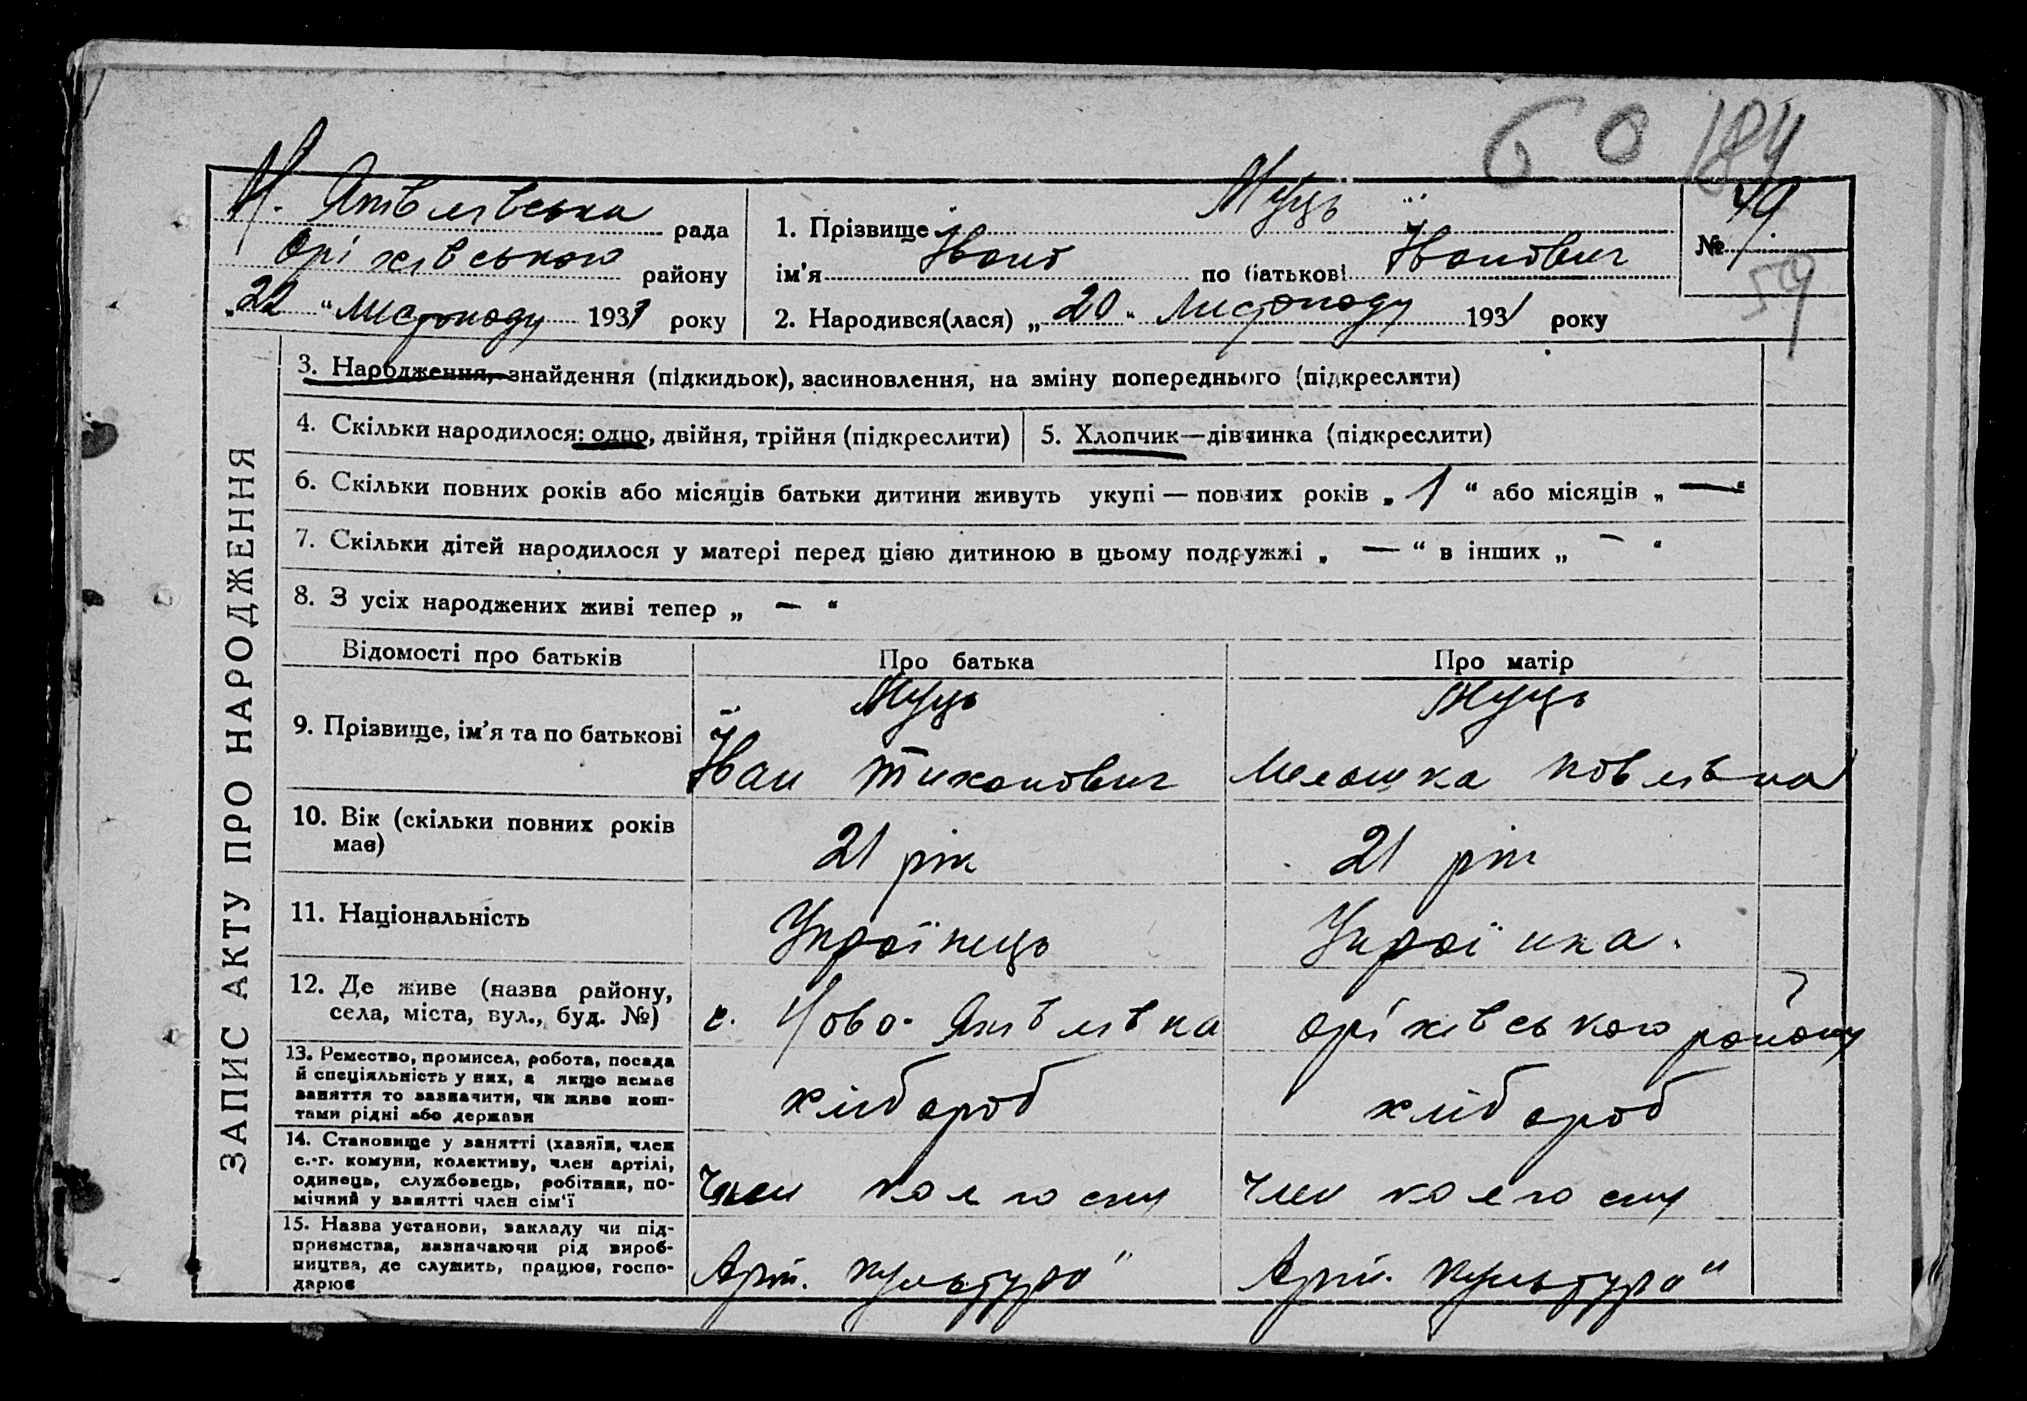 60 184
Н. Яківлівська рада
Оріхівського району
„22“ Листопаду 1931 року
1. Прізвище Муць
ім'я Іван по батькові Іванович
№ 49
59
2. Народився(лася) „20“ Листопаду 1931 року
ЗАПИС АКТУ ПРО НАРОДЖЕННЯ
3. Народження, знайдення (підкидьок), засиновлення, на зміну попереднього (підкреслити)
4. Скільки народилося: одно, двійня, трійня (підкреслити)
5. Хлопчик—дівчинка (підкреслити)
6. Скільки повних років або місяців батьки дитини живуть укупі — повних років „ 1 “ або місяців „ — “
7. Скільки дітей народилося у матері перед цією дитиною в цьому подружжі „ — “ в інших „ — “
8. З усіх народжених живі тепер „ — “
Відомості про батьків Про батька Про матір
9. Прізвище, ім'я та по батькові
Муць
Іван Тихонович
Муць
Мелашка Повлівна
10. Вік (скільки повних років
має)
21 рік
21 рік
11. Національність
Українець
Українка.
12. Де живе (назва району,
села, міста, вул., буд. №)
с. Ново-Яківлівка Оріхівського району
13. Ремество, промисел, робота, посада
й спеціяльність у них, а якщо немає
заняття то зазначити, чи живе кош-
тами рідні або держави
хлібороб
хлібороб
14. Становище у занятті (хазяїн, член
с.-г. комуни, колективу, член артілі,
одинець, службовець, робітник, по-
мічний у занятті член сім'ї
Член колгоспу
член колгоспу
15. Назва установи, закладу чи під-
приємства, зазначаючи рід вироб-
ництва, де служить, працює, госпо-
дарює
Арт. культура"
Арт. культура"